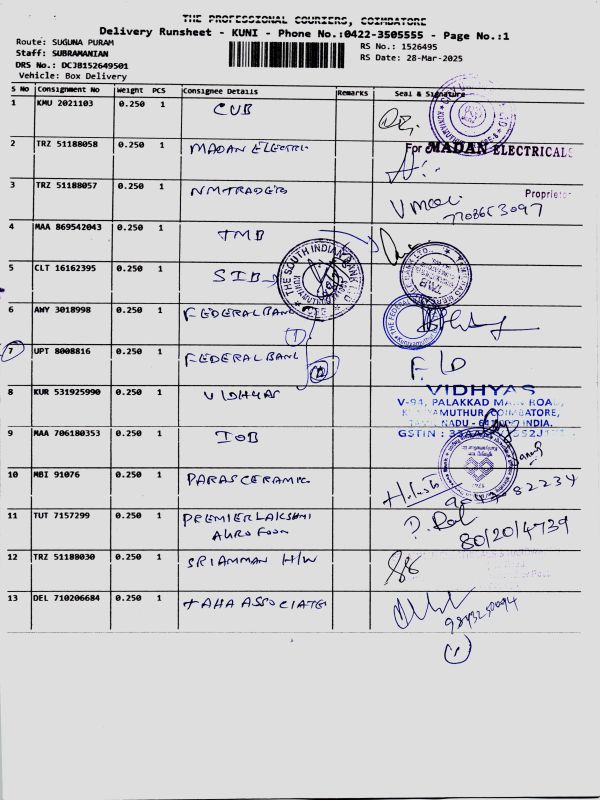 THE PROFESSIONAL COURIERS, COIMBATORE
Delivery Runsheet - KUNI - Phone No.:0422-3505555 - Page No.:1
Route: SUGUNA PURAM
RS No.: 1526495
Staff: SUBRAMANIAN
RS Date: 28-Mar-2025
DRS No.: DCJB152649501
Vehicle: Box Delivery
S No Consignment No Weight PCS Consignee Details Remarks Seal & Signature
1 KMU 2021103 0.250 1 CUB
2 TRZ 51188058 0.250 1 MADAN ELECTRI
For MADAN ELECTRICALS
3 TRZ 51188057 0.250 1 NMTRADERS
Proprietor
4 MAA 869542043 0.250 1 TMB
5 CLT 16162395 0.250 1 SIB
THE SOUTH INDIAN BANK LTD
6 ANY 3018998 0.250 1 FEDERAL BANK
THE FEDERAL
7 UPT 8008816 0.250 1 FEDERAL BANK
8 KUR 531925990 0.250 1 VIDHYAS
VIDHYAS
V-94, PALAKKAD MAIN ROAD,
KUNIYAMUTHUR, COIMBATORE,
TAMIL NADU - INDIA.
GSTIN :
9 MAA 706180353 0.250 1 IOB
10 MBI 91076 0.250 1 PARAS CERAMIC
11 TUT 7157299 0.250 1 PREMIER LAKSHMI
AGRO FOOD
12 TRZ 51188030 0.250 1 SRI AMMAN H/W
13 DEL 710206684 0.250 1 TAHA ASSOCIATE